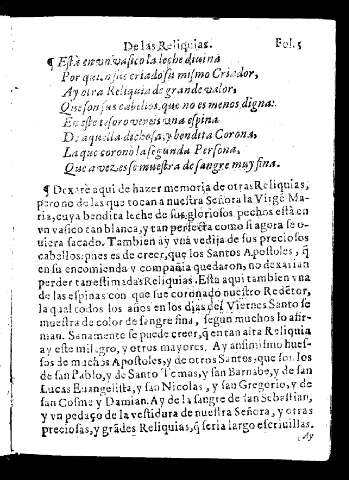 De las Reliquias. Fol. 5
¶ Està en vn vasico la leche diuina
Por quien fue criado su mismo Criador,
Ay otra Reliquia de grande valor,
Que son sus cabellos, que no es menos digna:
En este tesoro vereis vna espina
De aquella dichosa, y bendita Corona,
La que coronò la segunda Persona,
Que a vezes se muestra de sangre muy fina.
¶ Dexarè aqui de hazer memoria de otras Reliquias,
pero no de las que tocan a nuestra Señora la Virgẽ Ma-
ria, cuya bendita leche de sus gloriosos pechos està en
vn vasico tan blanca, y tan perfecta como si agora se o-
uiera sacado. Tambien ay vna vedija de sus preciosos
cabellos: pues es de creer, que los Santos Apostoles, q̃
en su encomienda y compañia quedaron, no dexarian
perder tan estimadas Reliquias. Esta aqui tambien vna
de las espinas con que fue coronado nuestro Redẽtor,
la qual todos los años en los dias del Viernes Santo se
muestra de color de sangre fina, segun muchos lo afir-
man. Sanamente se puede creer, q̃ en tan alta Reliquia
ay este milagro, y otros mayores. Ay ansimismo hues-
sos de muchos Apostoles, y de otros Santos, que son los
de san Pablo, y de Santo Tomas, y san Barnabe, y de san
Lucas Euangelista, y san Nicolas, y san Gregorio, y de
san Cosme y Damian. Ay de la sangre de san Sebastian,
y vn pedaço de la vestidura de nuestra Señora, y otras
preciosas, y grãdes Reliquias, q̃ seria largo escriuillas.
Ay